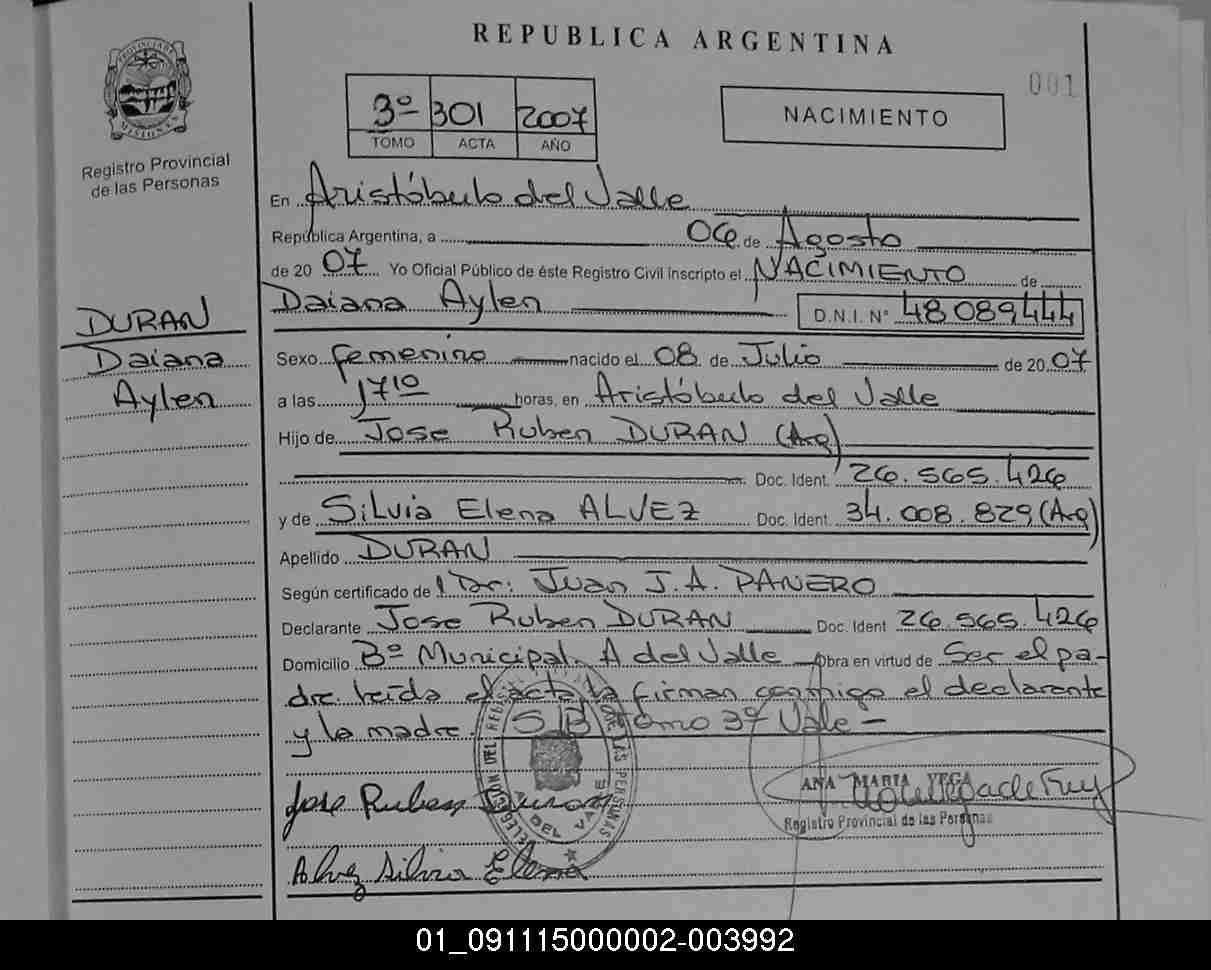 REPUBLICA ARGENTINA
001
PROVINCIA DE
MISIONES
Registro Provincial
de las Personas
3º 301 2007
TOMO ACTA AÑO
NACIMIENTO
En Aristóbulo del Valle
República Argentina, a 06 de Agosto
de 20 07 Yo Oficial Público de éste Registro Civil inscripto el NACIMIENTO de
Daiana Aylen D.N.I. Nº 48089444
DURAN
Daiana
Aylen
Sexo femenino nacido el 08 de Julio de 20 07
a las 17 10 horas, en Aristóbulo del Valle
Hijo de Jose Ruben DURAN (Arg)
Doc. Ident. 26.565.426
y de Silvia Elena ALVEZ Doc. Ident 34.008.829 (Arg)
Apellido DURAN
Según certificado de l Dr: Juan J. A. PANERO
Declarante Jose Ruben DURAN Doc. Ident 26.565.426
Domicilio Bº Municipal. A del Valle Obra en virtud de Ser el pa-
dre leída el acta la firman conmigo el declarante
y la madre. S/B tomo 3º Vale -
Jose Ruben Duran
ANA MARIA VEGA
Registro Provincial de las Personas
DELEGACION DEL REGISTRO DE LAS PERSONAS
A. DEL VALLE
Alvez Silvia Elena
01_091115000002-003992